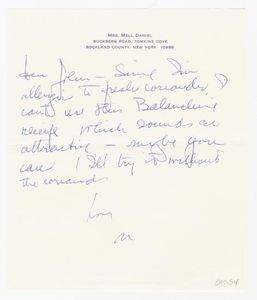 MRS. MELL DANIEL
BUCKBERG ROAD, TOMKINS COVE
ROCKLAND COUNTY, NEW YORK 10986
Dear John — Since I'm
allergic to fresh coriander, I
can't use this Balanchine
recipe which sounds so
attractive — maybe you
can I'll try it without
the coriander
Love
M